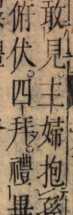 敢見主婦抱
俯伏四拜禮畢